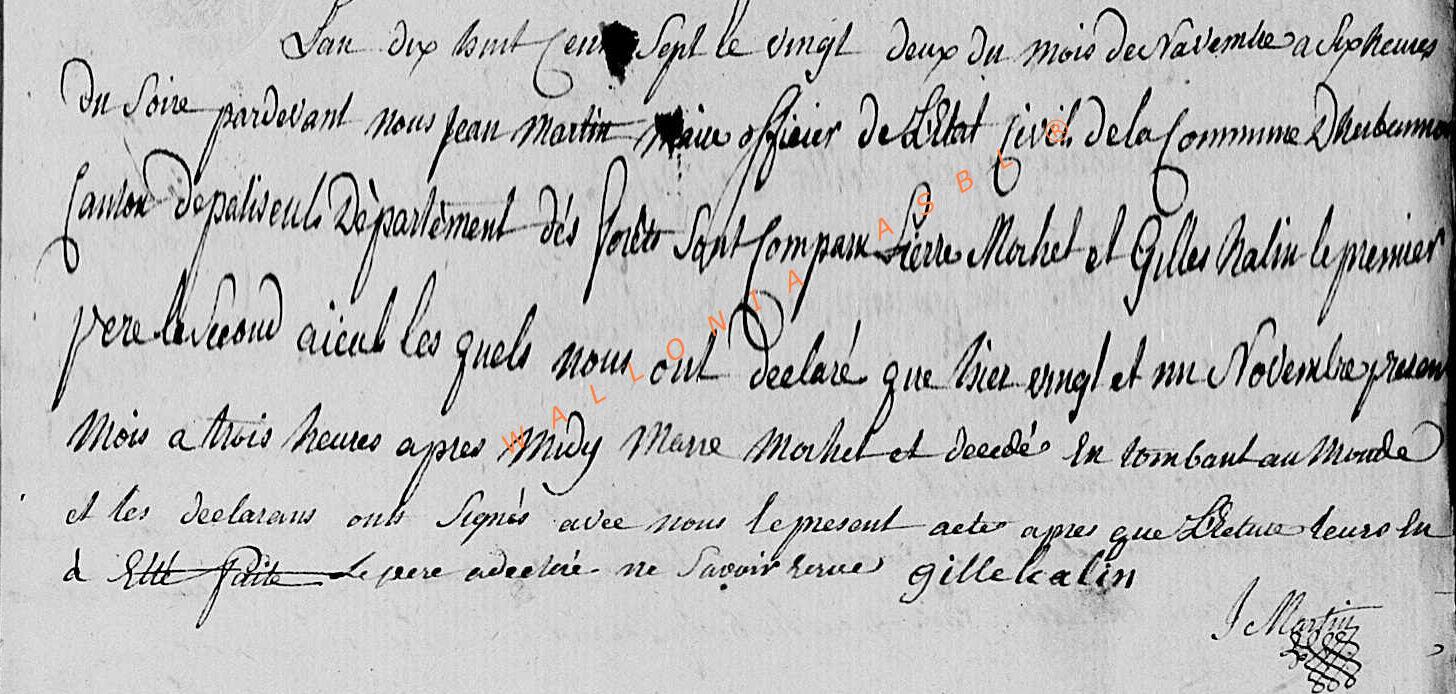 L'an dix huit Cent Sept le vingt deux du mois de Navembre a Six heures
du Soire pardevant nous Jean Martin Maire officier de L'Etat civil de la Commune D'herbeumon
Canton depaliseuls Dèpartèment dés forêts Sont Comparu Pierre Morhet et Gilles Kalin le premier
pere le Second aieul les quels nous ont declaré que hier vingt et un Novembre presen
Mois a trois heures apres Midy Marie Morhet et decedé En tombant au Monde
et les declarans onts Signés avec nous le present acte apres que Lecture leurs En
à Etté faite Le pere a declaré ne Savoir gille kalin
J Martin
WALLONIA ASBL ®